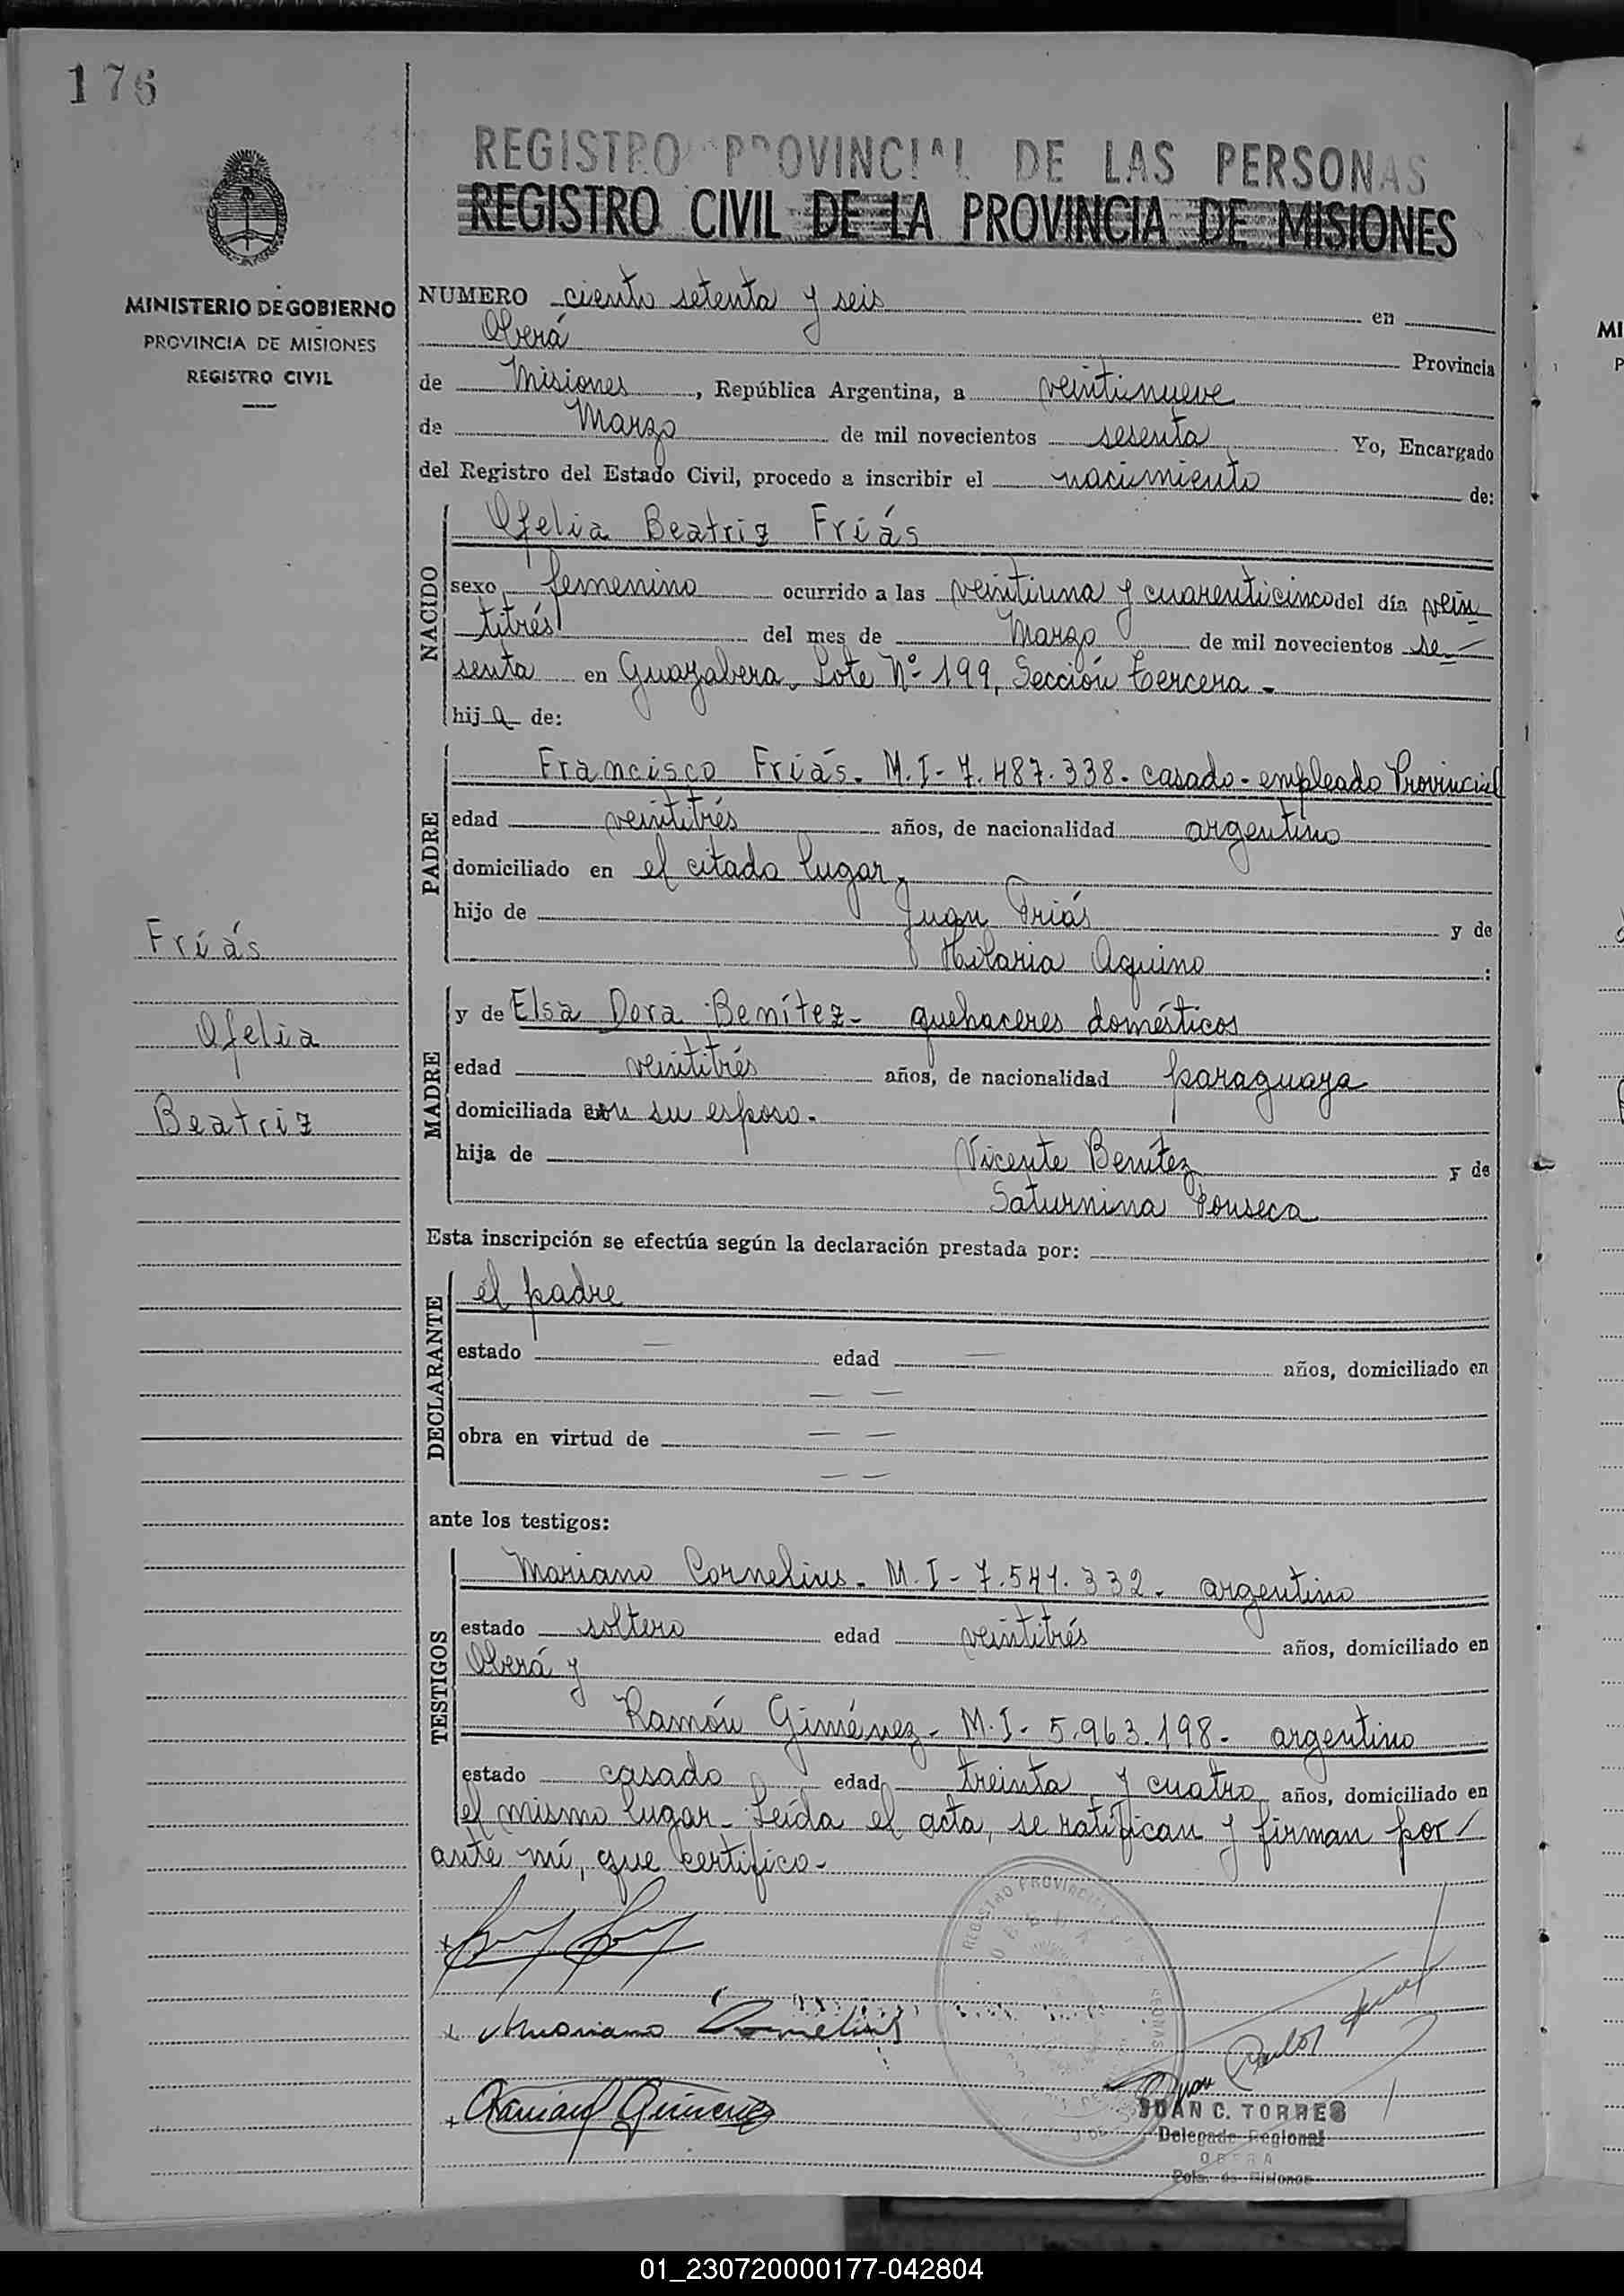 176
REGISTRO PROVINCIAL DE LAS PERSONAS
REGISTRO CIVIL DE LA PROVINCIA DE MISIONES
MINISTERIO DE GOBIERNO
PROVINCIA DE MISIONES
REGISTRO CIVIL
NUMERO ciento setenta y seis en
Oberá Provincia
de Misiones, República Argentina, a veintinueve
de Marzo de mil novecientos sesenta Yo, Encargado
del Registro del Estado Civil, procedo a inscribir el nacimiento de:
NACIDO
Ofelia Beatriz Friás
sexo femenino ocurrido a las veintiuna y cuarenticinco del día vein
titrés del mes de Marzo de mil novecientos se
senta en Guayabera, Lote Nº 199, Sección tercera -
hija de:
PADRE
Francisco Friás. M.I- 7.487.338- casado- empleado Provincial
edad veintitrés años, de nacionalidad argentino
domiciliado en el citado lugar,
hijo de Juan Friás y de
Hilaria Aquino :
Friás
Ofelia
Beatriz
MADRE
y de Elsa Dora Benítez- quehaceres domésticos
edad veintitrés años, de nacionalidad paraguaya
domiciliada con su esposo.
hija de Vicente Benítez y de
Saturnina Fonseca
Esta inscripción se efectúa según la declaración prestada por:
DECLARANTE
el padre
estado — edad — años, domiciliado en
— —
obra en virtud de — —
— —
ante los testigos:
TESTIGOS
Mariano Cornelius- M.I- 7.541.332- argentino
estado soltero edad veintitrés años, domiciliado en
Oberá y
Ramón Giménez- M.I- 5.963.198- argentino
estado casado edad treinta y cuatro años, domiciliado en
el mismo lugar- Leída el acta, se ratifican y firman por
ante mí, que certifico-
REGISTRO PROVINCIAL
Mariano Cornelius
Ramón Giménez
Juan Carlos
JUAN C. TORRES
Delegado Regional
OBERA
Pcia. de Misiones
01_230720000177-042804